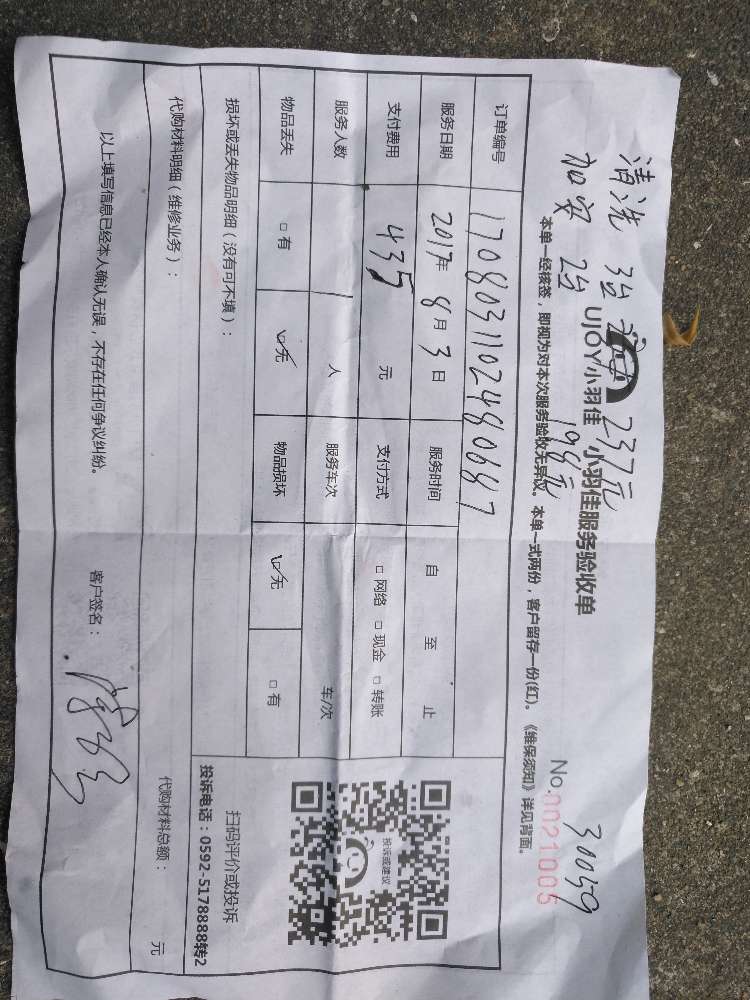 清洗 3台 237元
加安 2台 198元
30059
UJOY小羽佳 小羽佳服务验收单
No.0021005
本单一经核签，即视为对本次服务验收无异议。本单一式两份，客户留存一份(红)。《维保须知》详见背面。
订单编号 1708031102480687
服务日期 2017年 8月 3日 服务时间 自 至 止
支付费用 435 元 支付方式 □ 网络 □ 现金 □ 转账
服务人数 / 人 服务车次 车/次
物品丢失 □ 有 ☑ 无 物品损坏 ☑ 无 □ 有
损坏或丢失物品明细（没有可不填）：
投诉或建议
扫码评价或投诉
投诉电话：0592-5178888转2
代购材料明细（维修业务）： 代购材料总额： 元
以上填写信息已经本人确认无误，不存在任何争议纠纷。 客户签名：